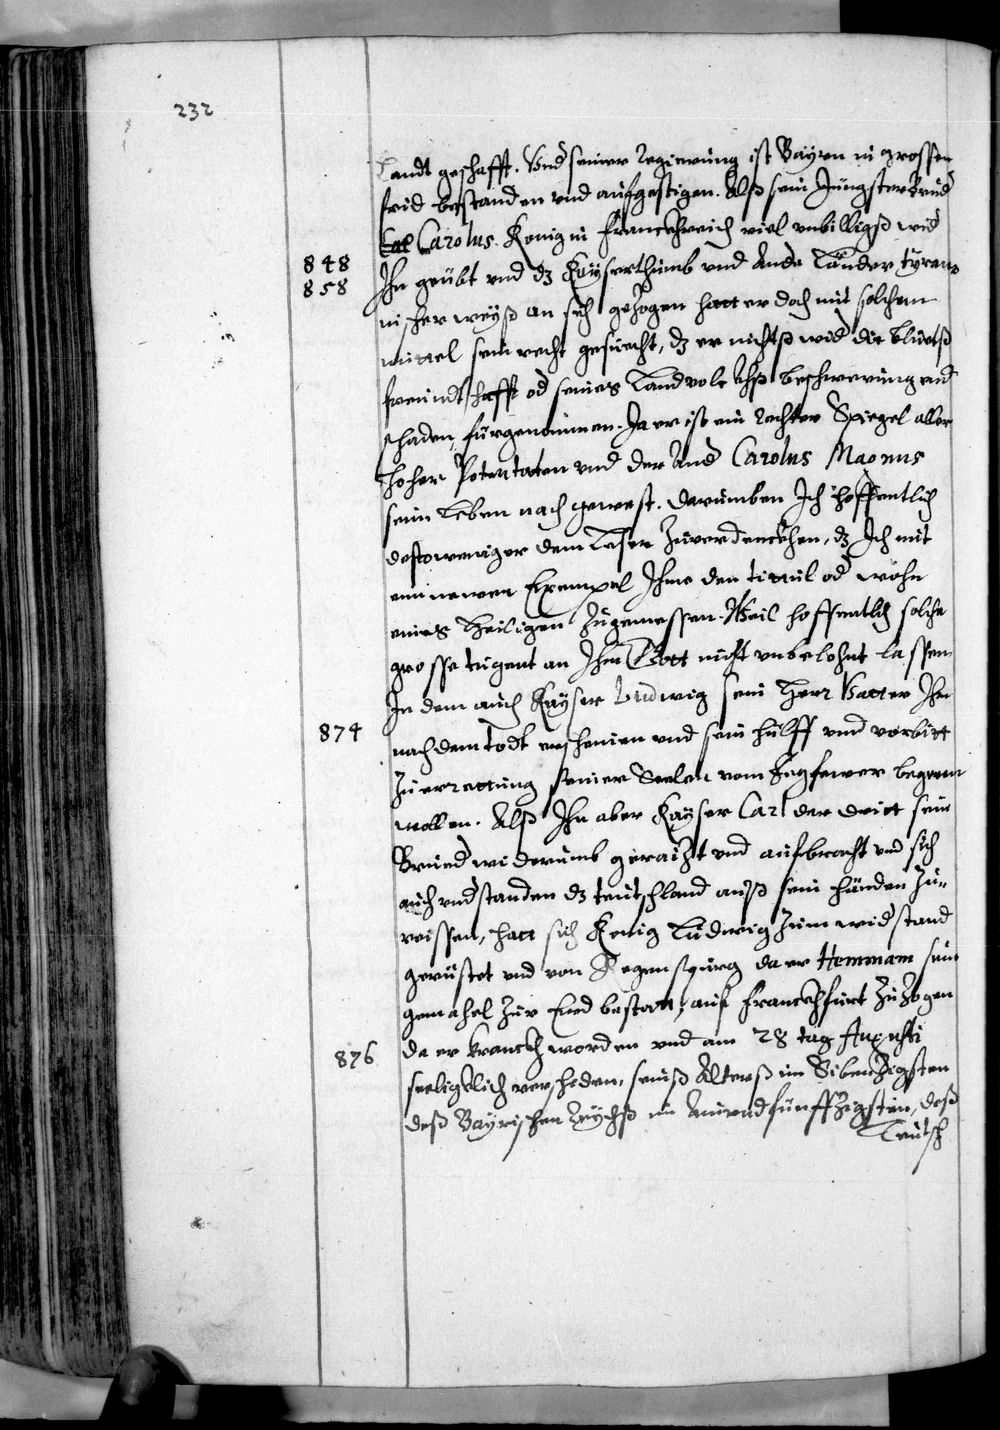 232
Landt geschafft. Und seiner regierung ist Bayrn in grossen
frid bestanden und aufgestigen. Alß sein Jüngster Brued
Carolus König in Franckhreich viel unbilligß wid
848
858
Ihn geübt und dz Kayserthumb und Ande Länder tyran
nischer weyß an sich gezogen hatt er doch mit solchem
mittel sein recht gesuecht, dz er nichtß wid die bluetß
freundtschafft od seines Landvolckhß beschwerung und
schaden, fürgenommen. Ja er ist ein rechter Spiegel aller
hoher Potentaten und der And Carolus Magnus
seim Leben nach gewest. Darumben Ich hoffentlich
destoweniger dem Leser zuverdenckhen, dz Ich mit
ein newen Exempel Ihme den titul od wohn
eines Heiligen zugemessen. Weil hoffentlich solche
grosse tugent an Ihm Gott nicht unbelohnt lassen
In dem auch Kayser Ludwig sein Herr Vatter Ihn
874
nach dem todt erschienen und sein hülff und vorbitt
zu errettung seiner Seelen vom Fegfewer begeren
wollen. Alß Ihn aber Kayser Carl der dritt sein
Brued widerumb geraitzt und aufbracht und sich
auch understanden dz teutschland auß sein händen zu
reissen, hatt sich König Ludwig zum widstand
gerüstet und von Regenspurg da er Hemmam sein
gemahel zur Erd bestatt, auf Franckhfurt zu zogen
876
da er kranckh worden und am 28 tag Augusti
seeligklich verscheden, seinß Alterß im Sibenzigsten
deß Bayrischen Reychß im Ainundfünffzigsten, deß
Teutsch